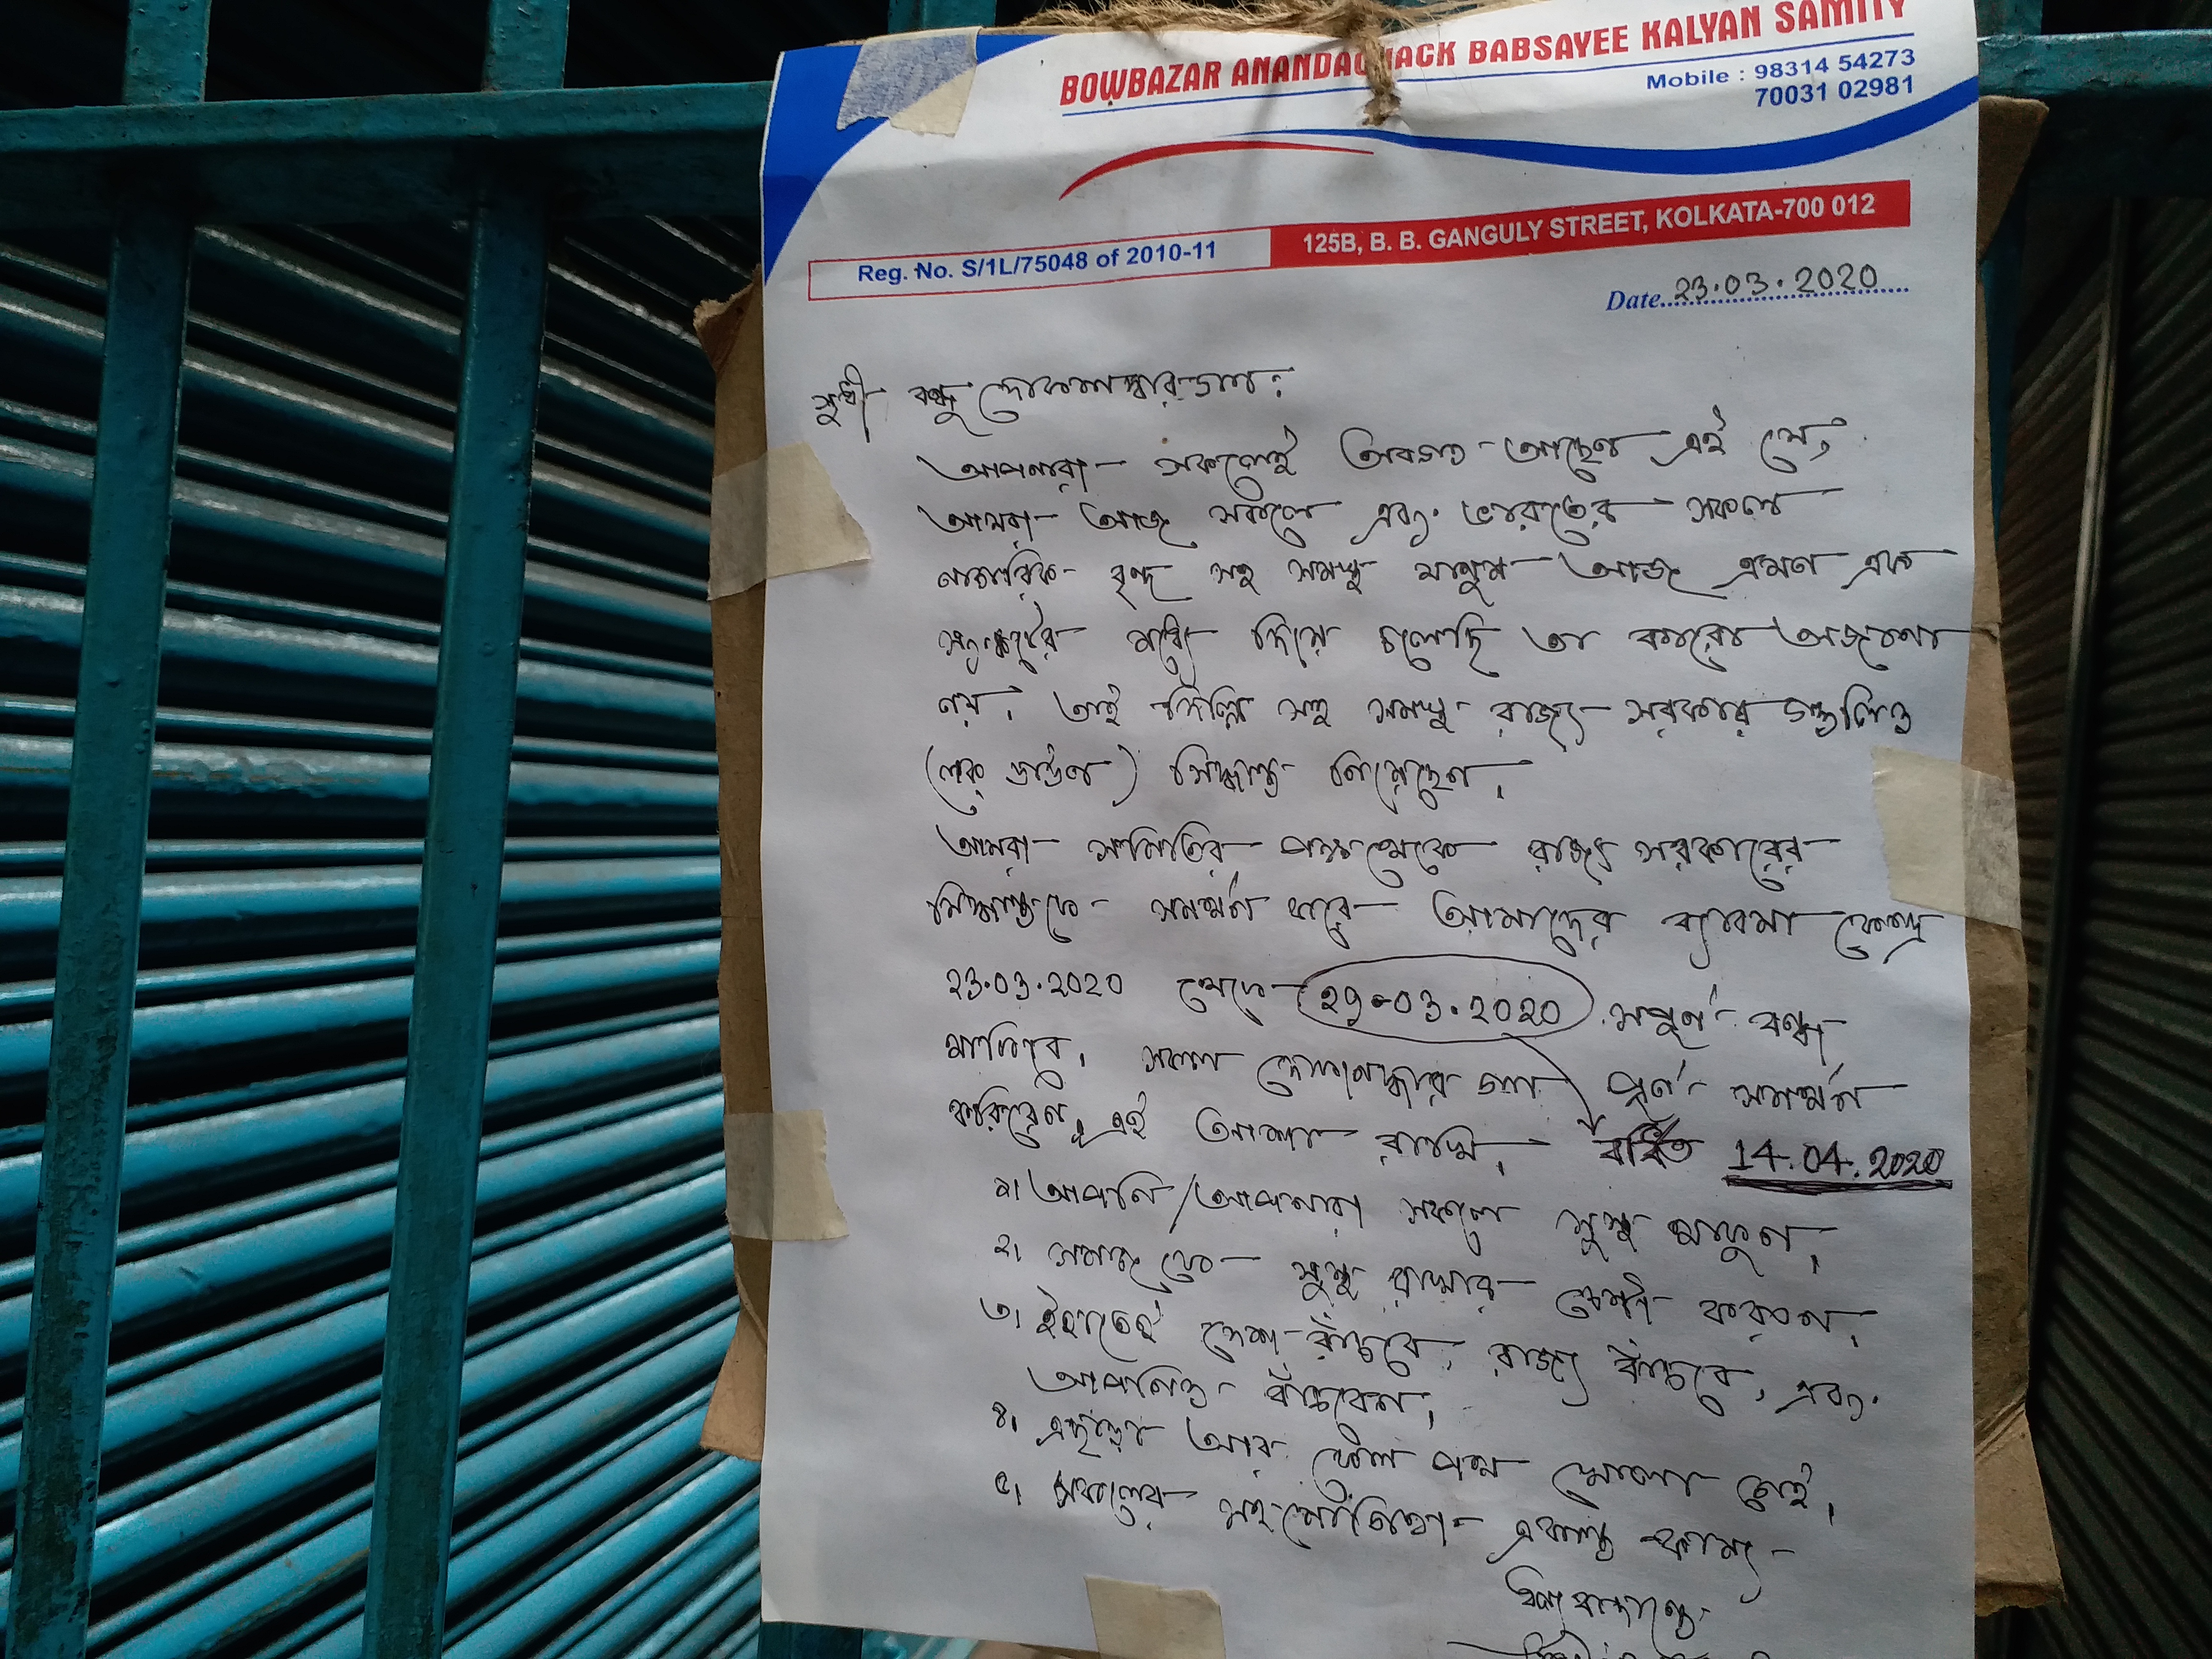 BOWBAZAR ANANDACHACK BABSAYEE KALYAN SAMITY
Mobile : 98314 54273
70031 02981
Reg. No. S/1L/75048 of 2010-11
125B, B. B. GANGULY STREET, KOLKATA-700 012
Date 23.03.2020
সুধী বন্ধু দোকানদারগণ:
আপনারা সকলেই অবগত আছেন এই যে,
আমরা আজ সকলে এবং ভারতের সকল
নাগরিক বৃন্দ সহ সমস্ত মানুষ আজ এমন এক
সংকটের মধ্যে দিয়ে চলেছি তা কারো অজানা
নয়। তাই দিল্লি সহ সমস্ত রাজ্য সরকার গুলিও
(লক্ ডাউন) সিদ্ধান্ত নিয়েছেন।
আমরা সমিতির পক্ষথেকে রাজ্য সরকারের
সিদ্ধান্তকে সমর্থন করে আমাদের ব্যাবসা কেন্দ্র
23.03.2020 থেকে 27.03.2020 সম্পুর্ন বন্ধ
থাকিবে। সকল দোকানদার গন পুর্ন সমর্থন
করিবেন, এই আশা রাখি। বর্ধিত 14.04.2020
১। আপনি/আপনারা সকলে সুস্থ থাকুন।
২। সমাজ কে সুস্থ রাখার চেষ্টা করুন।
৩। ইহাতেই দেশ বাঁচবে, রাজ্য বাঁচবে, এবং
আপনিও বাঁচবেন।
৪। এছাড়া আর কোন পথ খোলা নেই।
৫। সকলের সহযোগিতা একান্ত কাম্য